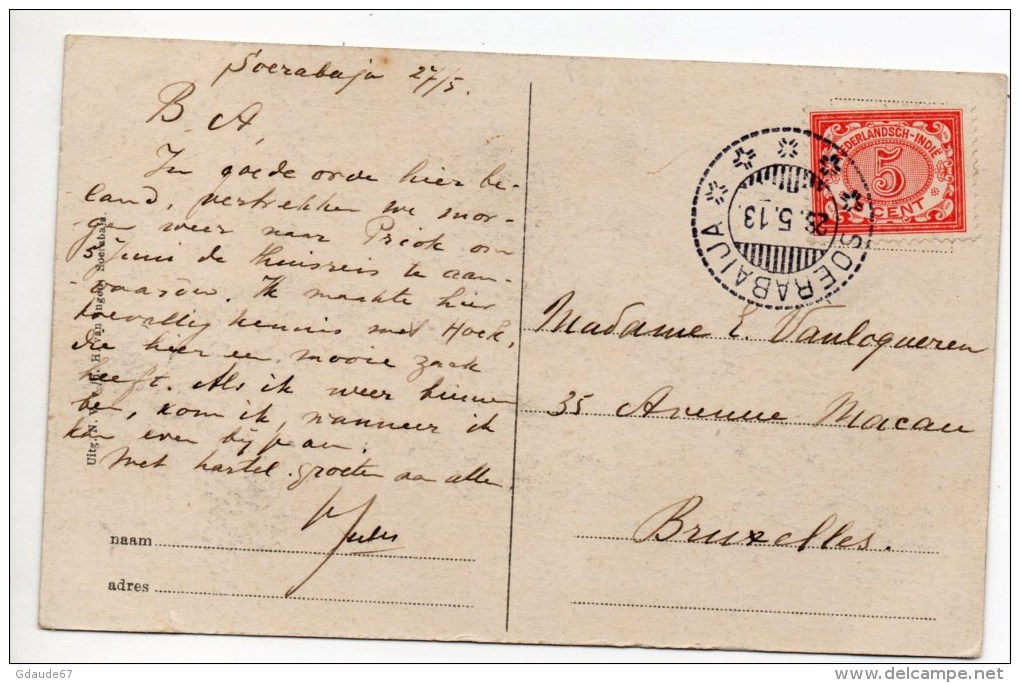 Soerabaija 27/5.
B. A,
In goede orde hier be-
land, vertrekken we mor-
gen weer naar Priok om
5 Juni de thuisreis te aan-
vaarden. Ik maakte hier
toevallig kennis met Hoek,
die hier een mooie zaak
heeft. Als ik weer binnen
ben, kom ik, wanneer ik
kan even bij je aan.
Met hartel. groeten aan allen
Jules
naam
adres
Uitg. N. V. v/h H. van Ingen, Soerabaia.
NEDERLANDSCH-INDIË
5
CENT
SOERABAIJA
5.13
Madame E. Vanloqueren
35 Avenue Macau
Bruxelles.
Gdaude67
delcampe.net